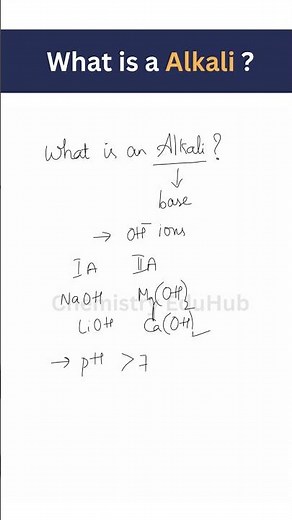 What is a Alkali ?
What is an Alkali?
↓
base
→ OH⁻ ions
IA IIA
NaOH Mg(OH)₂
Chemistry EduHub
LiOH Ca(OH)₂
→ pH > 7